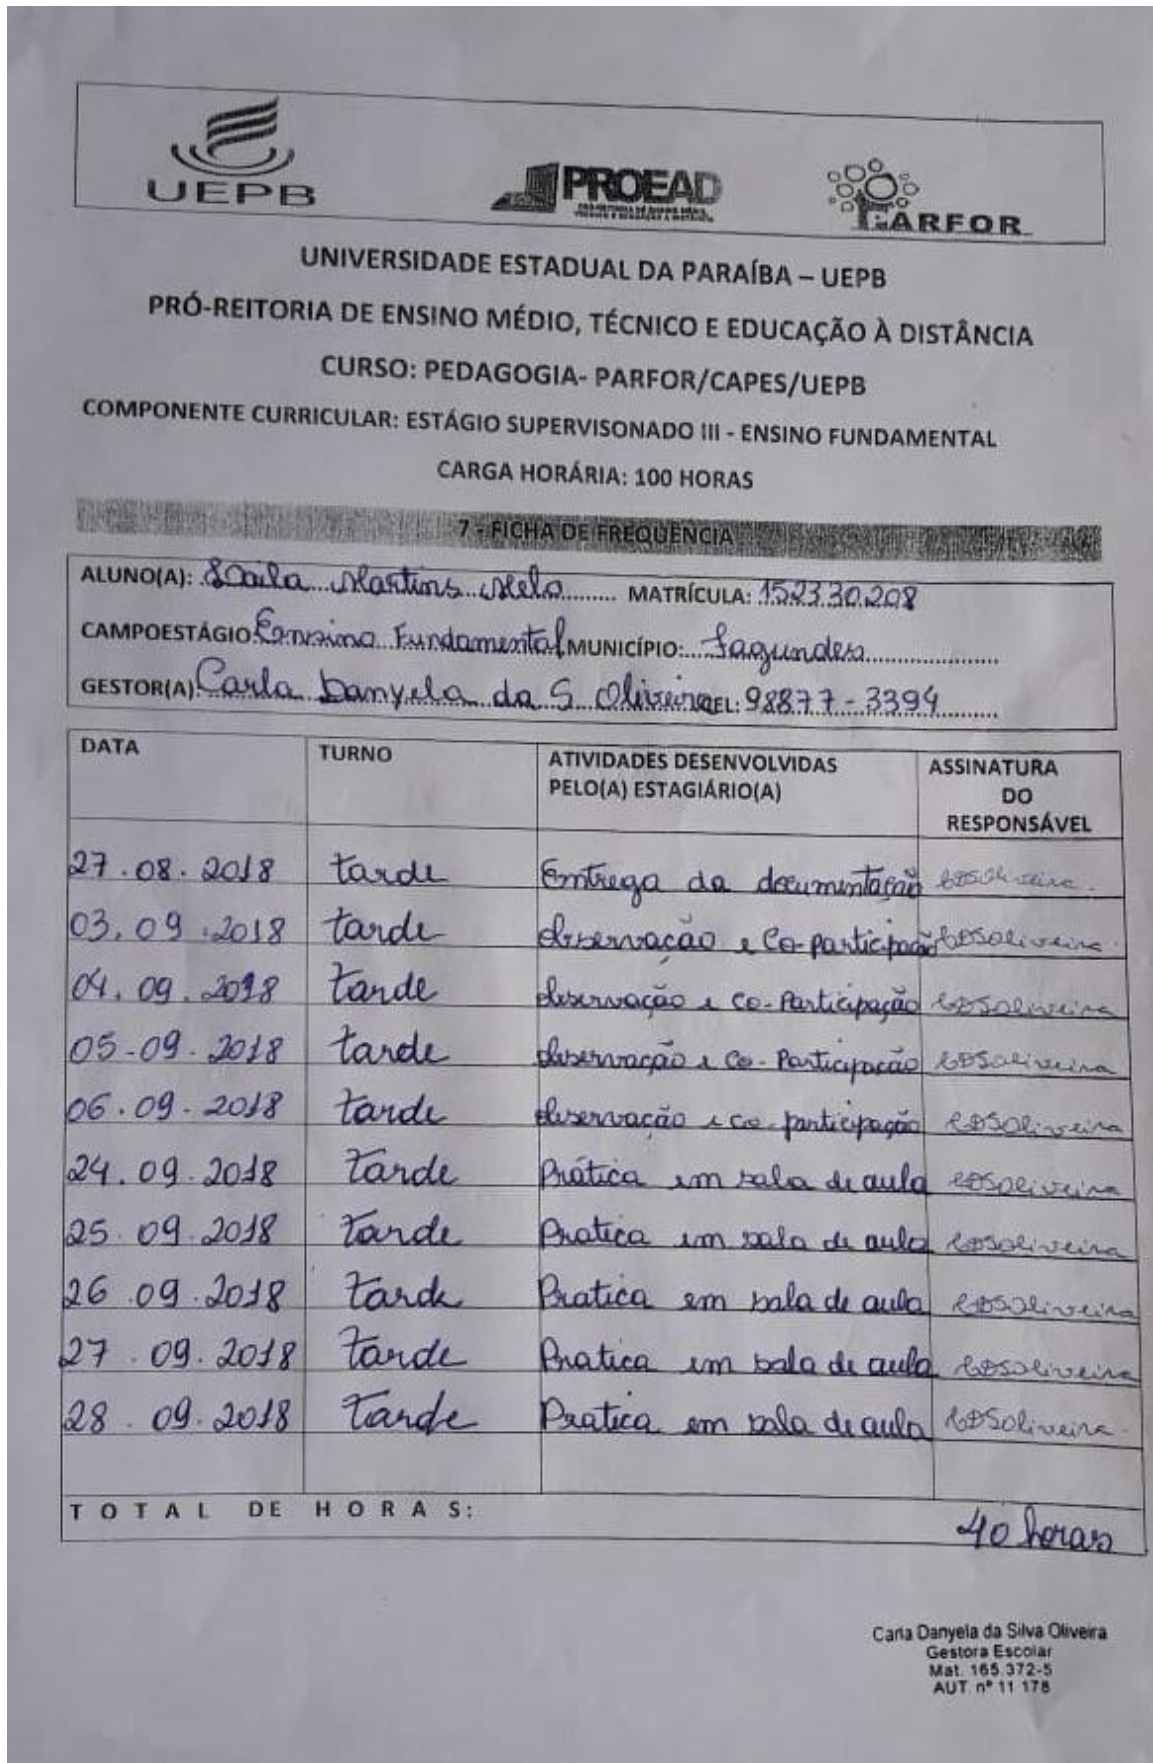 UEPB
PROEAD
PARFOR
UNIVERSIDADE ESTADUAL DA PARAÍBA – UEPB
PRÓ-REITORIA DE ENSINO MÉDIO, TÉCNICO E EDUCAÇÃO À DISTÂNCIA
CURSO: PEDAGOGIA- PARFOR/CAPES/UEPB
COMPONENTE CURRICULAR: ESTÁGIO SUPERVISONADO III - ENSINO FUNDAMENTAL
CARGA HORÁRIA: 100 HORAS
7 - FICHA DE FREQUÊNCIA
ALUNO(A): Martins Melo MATRÍCULA: 152330208
CAMPOESTÁGIO: Ensino Fundamental MUNICÍPIO: Fagundes
GESTOR(A) Carla Danyela da S Oliveira TEL: 98877-3394
DATA TURNO ATIVIDADES DESENVOLVIDAS PELO(A) ESTAGIÁRIO(A) ASSINATURA DO RESPONSÁVEL
27.08.2018 tarde Entrega da documentação CDSOliveira
03.09.2018 tarde observação e Co-participação CDSOliveira
04.09.2018 tarde observação e Co-Participação CDSOliveira
05-09-2018 tarde observação e Co-Participação CDSOliveira
06.09-2018 tarde observação e co-participação CDSOliveira
24.09.2018 tarde Prática em sala de aula CDSOliveira
25.09.2018 tarde Pratica em sala de aula CDSOliveira
26.09.2018 tarde Pratica em sala de aula CDSOliveira
27.09.2018 tarde Pratica em sala de aula CDSOliveira
28.09.2018 tarde Pratica em sala de aula CDSOliveira
TOTAL DE HORAS: 40 horas
Carla Danyela da Silva Oliveira
Gestora Escolar
Mat. 165.372-5
AUT. nº 11 178